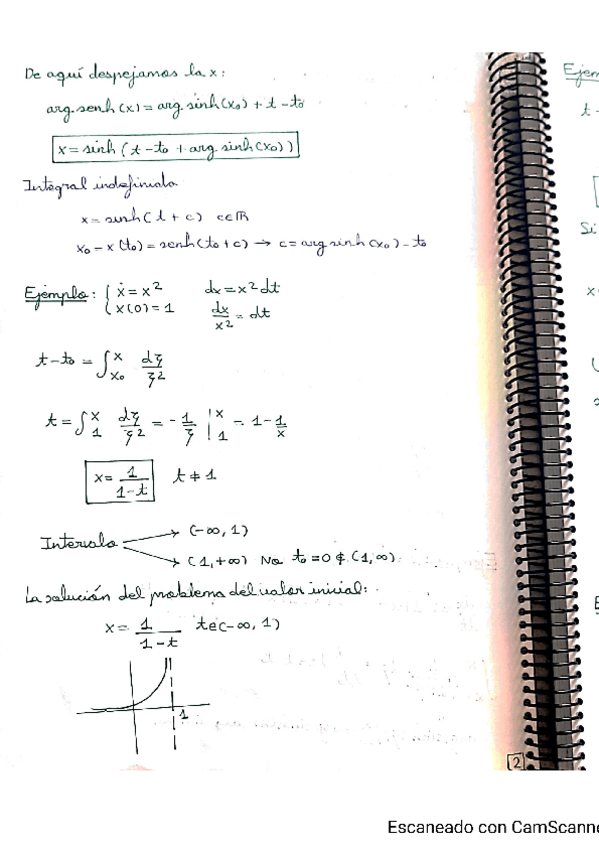 De aquí despejamos la x:
arg.senh(x) = arg.sinh(x₀) + t - t₀
x = sinh(t - t₀ + arg.sinh(x₀))
Integral indefinida
x = sinh(t + c) c∈ℝ
x₀ = x(t₀) = senh(t₀ + c) → c = arg sinh(x₀) - t₀
Ejemplo: { ẋ = x² dx = x² dt
x(0) = 1 dx/x² = dt
t - t₀ = ∫ₓ₀ˣ dξ/ξ²
t = ∫₁ˣ dξ/ξ² = - 1/ξ |₁ˣ = 1 - 1/x
x = 1/(1-t) t ≠ 1
Intervalo → (-∞, 1)
→ (1, +∞) No t₀ = 0 ∉ (1, ∞)
La solución del problema del valor inicial:
x = 1/(1-t) t∈(-∞, 1)
1
2
Ejem
t -
Si
x
Escaneado con CamScanne